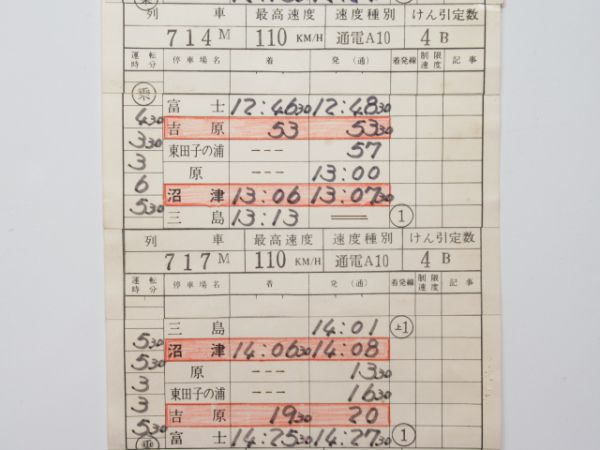 乗
列 車 最高速度 速度種別 けん引定数
714M 110 KM/H 通電A10 4 B
運転時分 停車場名 着 発(通) 着発線 制限速度 記事
乗
富 士 12:46 30 12:48 30
4 30
吉 原 53 53 30
3 30
東田子の浦 --- 57
3
原 --- 13:00
6
沼 津 13:06 13:07 30
5 30
三 島 13:13 ═ 1
列 車 最高速度 速度種別 けん引定数
717M 110 KM/H 通電A10 4 B
運転時分 停車場名 着 発(通) 着発線 制限速度 記事
三 島 14:01 上1
5 30
沼 津 14:06 30 14:08
5 30
原 --- 13 30
3
東田子の浦 --- 16 30
3
吉 原 19 30 20
5 30
富 士 14:25 30 14:27 30 1
乗